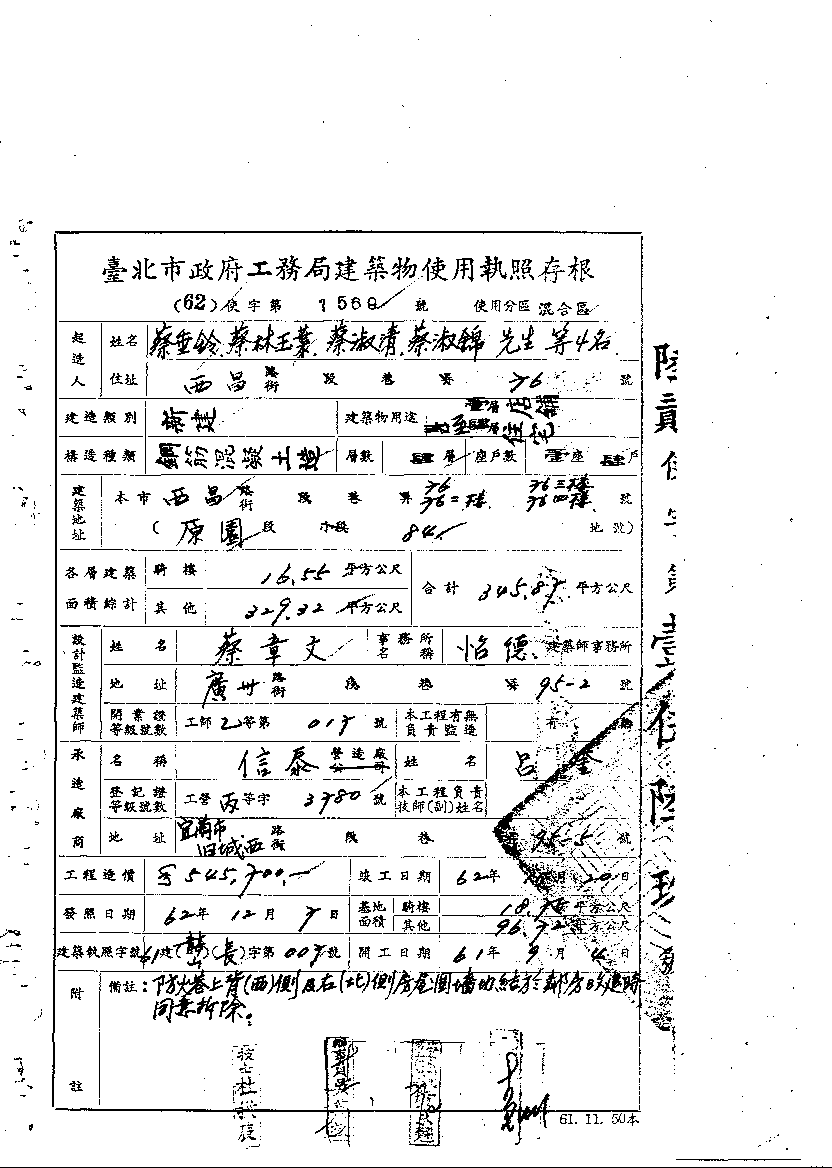 臺北市政府工務局建築物使用執照存根
(62)使字第 1568 號 使用分區 混合區
起造人 姓名 蔡垂鈴、蔡林玉葉、蔡淑清、蔡淑錦 先生 等4名
住址 西昌 路街 段 巷 弄 76 號
建造類別 新建 建築物用途 壹層店舖
貳至肆層住宅
構造種類 鋼筋混凝土造 層數 肆層 座戶數 壹座 肆戶
建築地址 本市 西昌 路街 段 巷 弄 76 76二樓 76三樓 76四樓 號
( 原園段 小段 84 地號)
各層建築面積綜計 騎樓 16.55 平方公尺 合計 345.87 平方公尺
其他 329.32 平方公尺
設計監造建築師 姓名 蔡章文 事務所名稱 怡德 建築師事務所
地址 廣州 路街 段 巷 弄 95-2 號
開業證等級號數 工師乙等第 017 號 本工程有無負責監造 有 無
承造廠商 名稱 信泰 營造廠公司 姓名 呂 金
登記證等級號數 工營丙等字 3780 號 本工程負責技師(副)姓名
地址 宜蘭市旧城西 路街 段 巷 95-5 號
工程造價 545,700.- 竣工日期 62年 月 20日
發照日期 62年 12月 7日 基地面積 騎樓 平方公尺
其他 96.72 平方公尺
建築執照字號 61建( )(長)字第 007 號 開工日期 61年 9月 4日
附註 備註:防火巷上背(西)側及右(北)側房屋圍墻
同業拆除。
61. 11. 50本